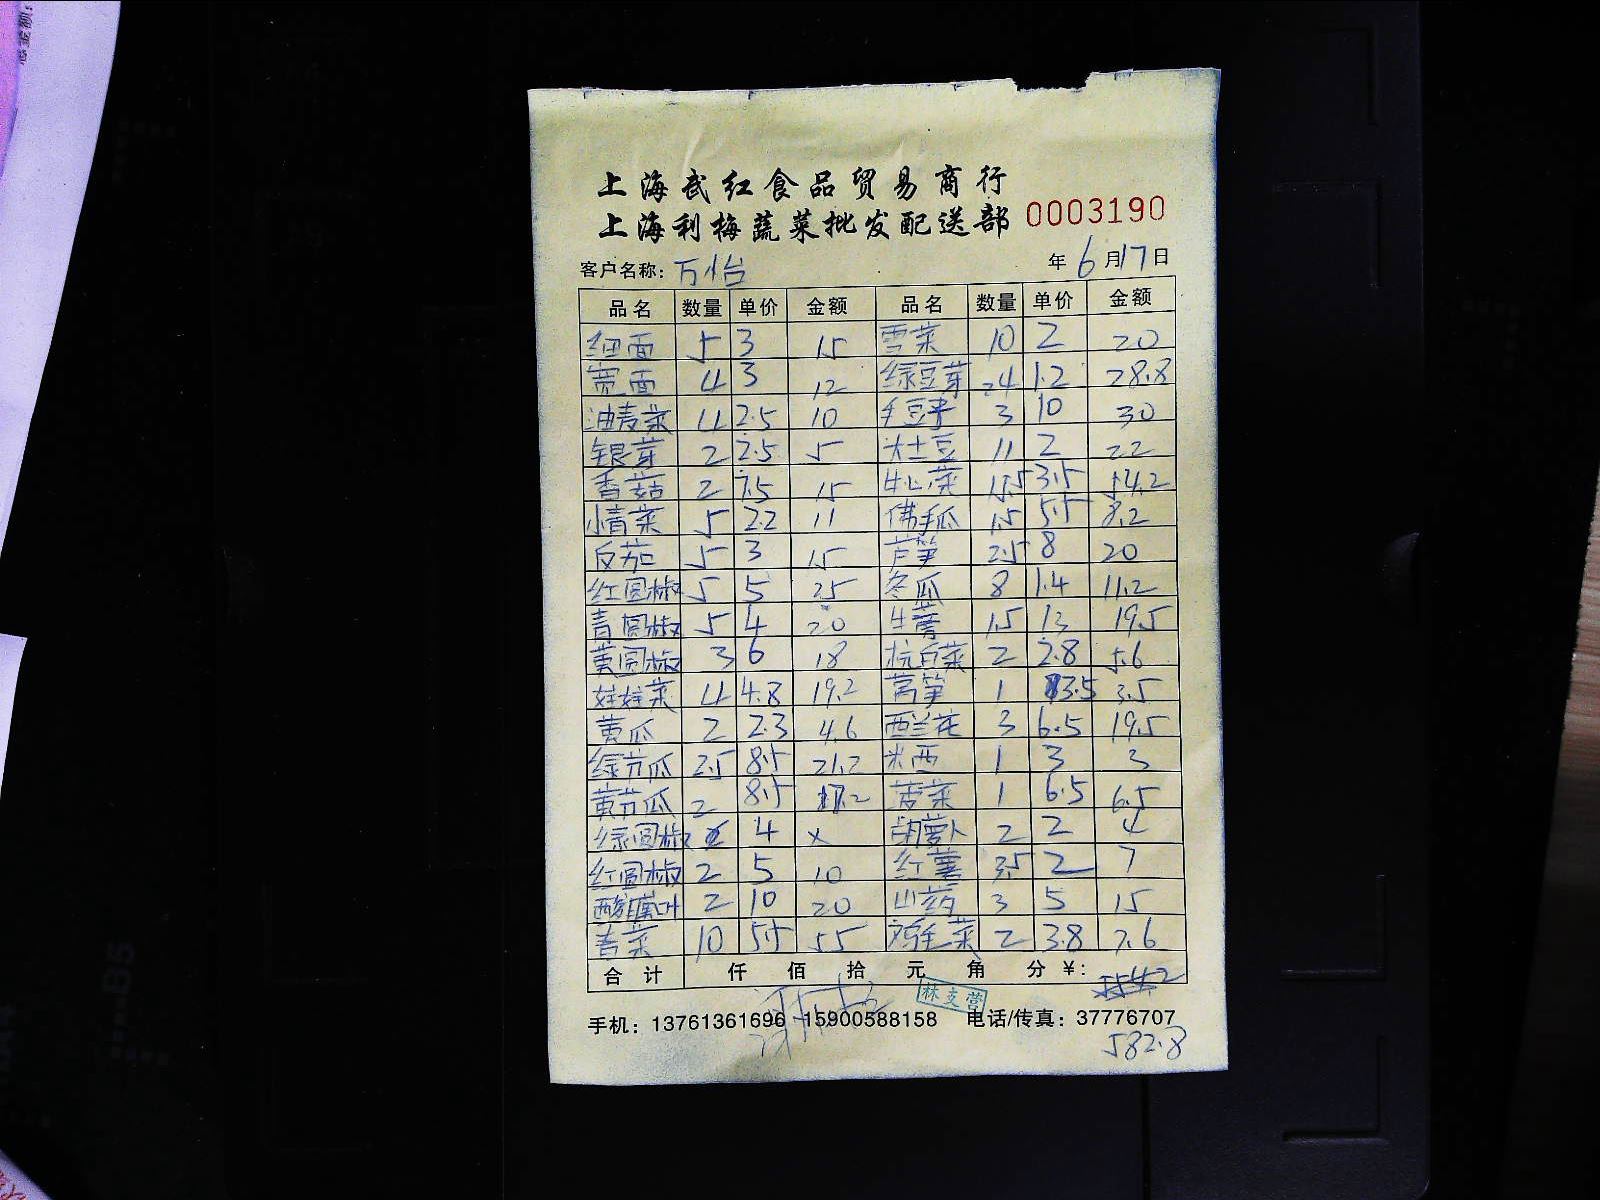 上海武红食品贸易商行
上海利梅蔬菜批发配送部 0003190
客户名称: 万怡 年 6 月 17 日
品名 数量 单价 金额 品名 数量 单价 金额
细面 5 3 15 雪菜 10 2 20
宽面 4 3 12 绿豆芽 24 1.2 28.8
油麦菜 4 2.5 10 毛豆子 3 10 30
银芽 2 2.5 5 大土豆 11 2 22
香菇 2 7.5 15 牛心菜 15.5 3.5 54.2
小青菜 5 2.2 11 佛手瓜 1.5 5.5 8.2
反茄 5 3 15 芦笋 2.5 8 20
红圆椒 5 5 25 冬瓜 8 1.4 11.2
青圆椒 5 4 20 牛蒡 1.5 13 19.5
黄圆椒 3 6 18 杭白菜 2 2.8 5.6
娃娃菜 4 4.8 19.2 莴笋 1 3.5 3.5
黄瓜 2 2.3 4.6 西兰花 3 6.5 19.5
绿节瓜 2.5 8.5 21.2 米西 1 3 3
黄节瓜 2 8.5 17.2 苦菜 1 6.5 6.5
绿圆椒 4 x 胡萝卜 2 2 4
红圆椒 2 5 10 红薯 3.5 2 7
2 10 20 山药 3 5 15
青菜 10 5.5 55 鸡毛菜 2 3.8 7.6
合计 仟 佰 拾 元 角 分 ¥: 554.2
林支营
手机: 13761361696 15900588158 电话/传真: 37776707
582.8